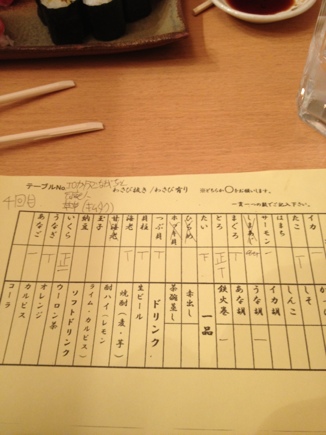 テーブルNo.
わさび抜き / わさび有り
※どちらかに○をお願いします。
4回目
一貫一一の数でご記入下さい。
イカ
たこ 一
はまち
サーモン 一
しまあじ
まぐろ 丁
とろ 正一
たい 下
ひらめ
ホタテ貝
つぶ貝 丁
貝柱
海老
甘海老 一
玉子
納豆
いくら 正
うなぎ 丁
あなご 一
しそ
しんこ
イカ胡
うな胡
あな胡
鉄火巻 一
一品
赤出し
茶碗蒸し
ドリンク
生ビール
焼酎(麦・芋)
酎ハイ(レモン
ライム・カルピス)
ソフトドリンク
ウーロン茶
オレンジ
カルピス
コーラ